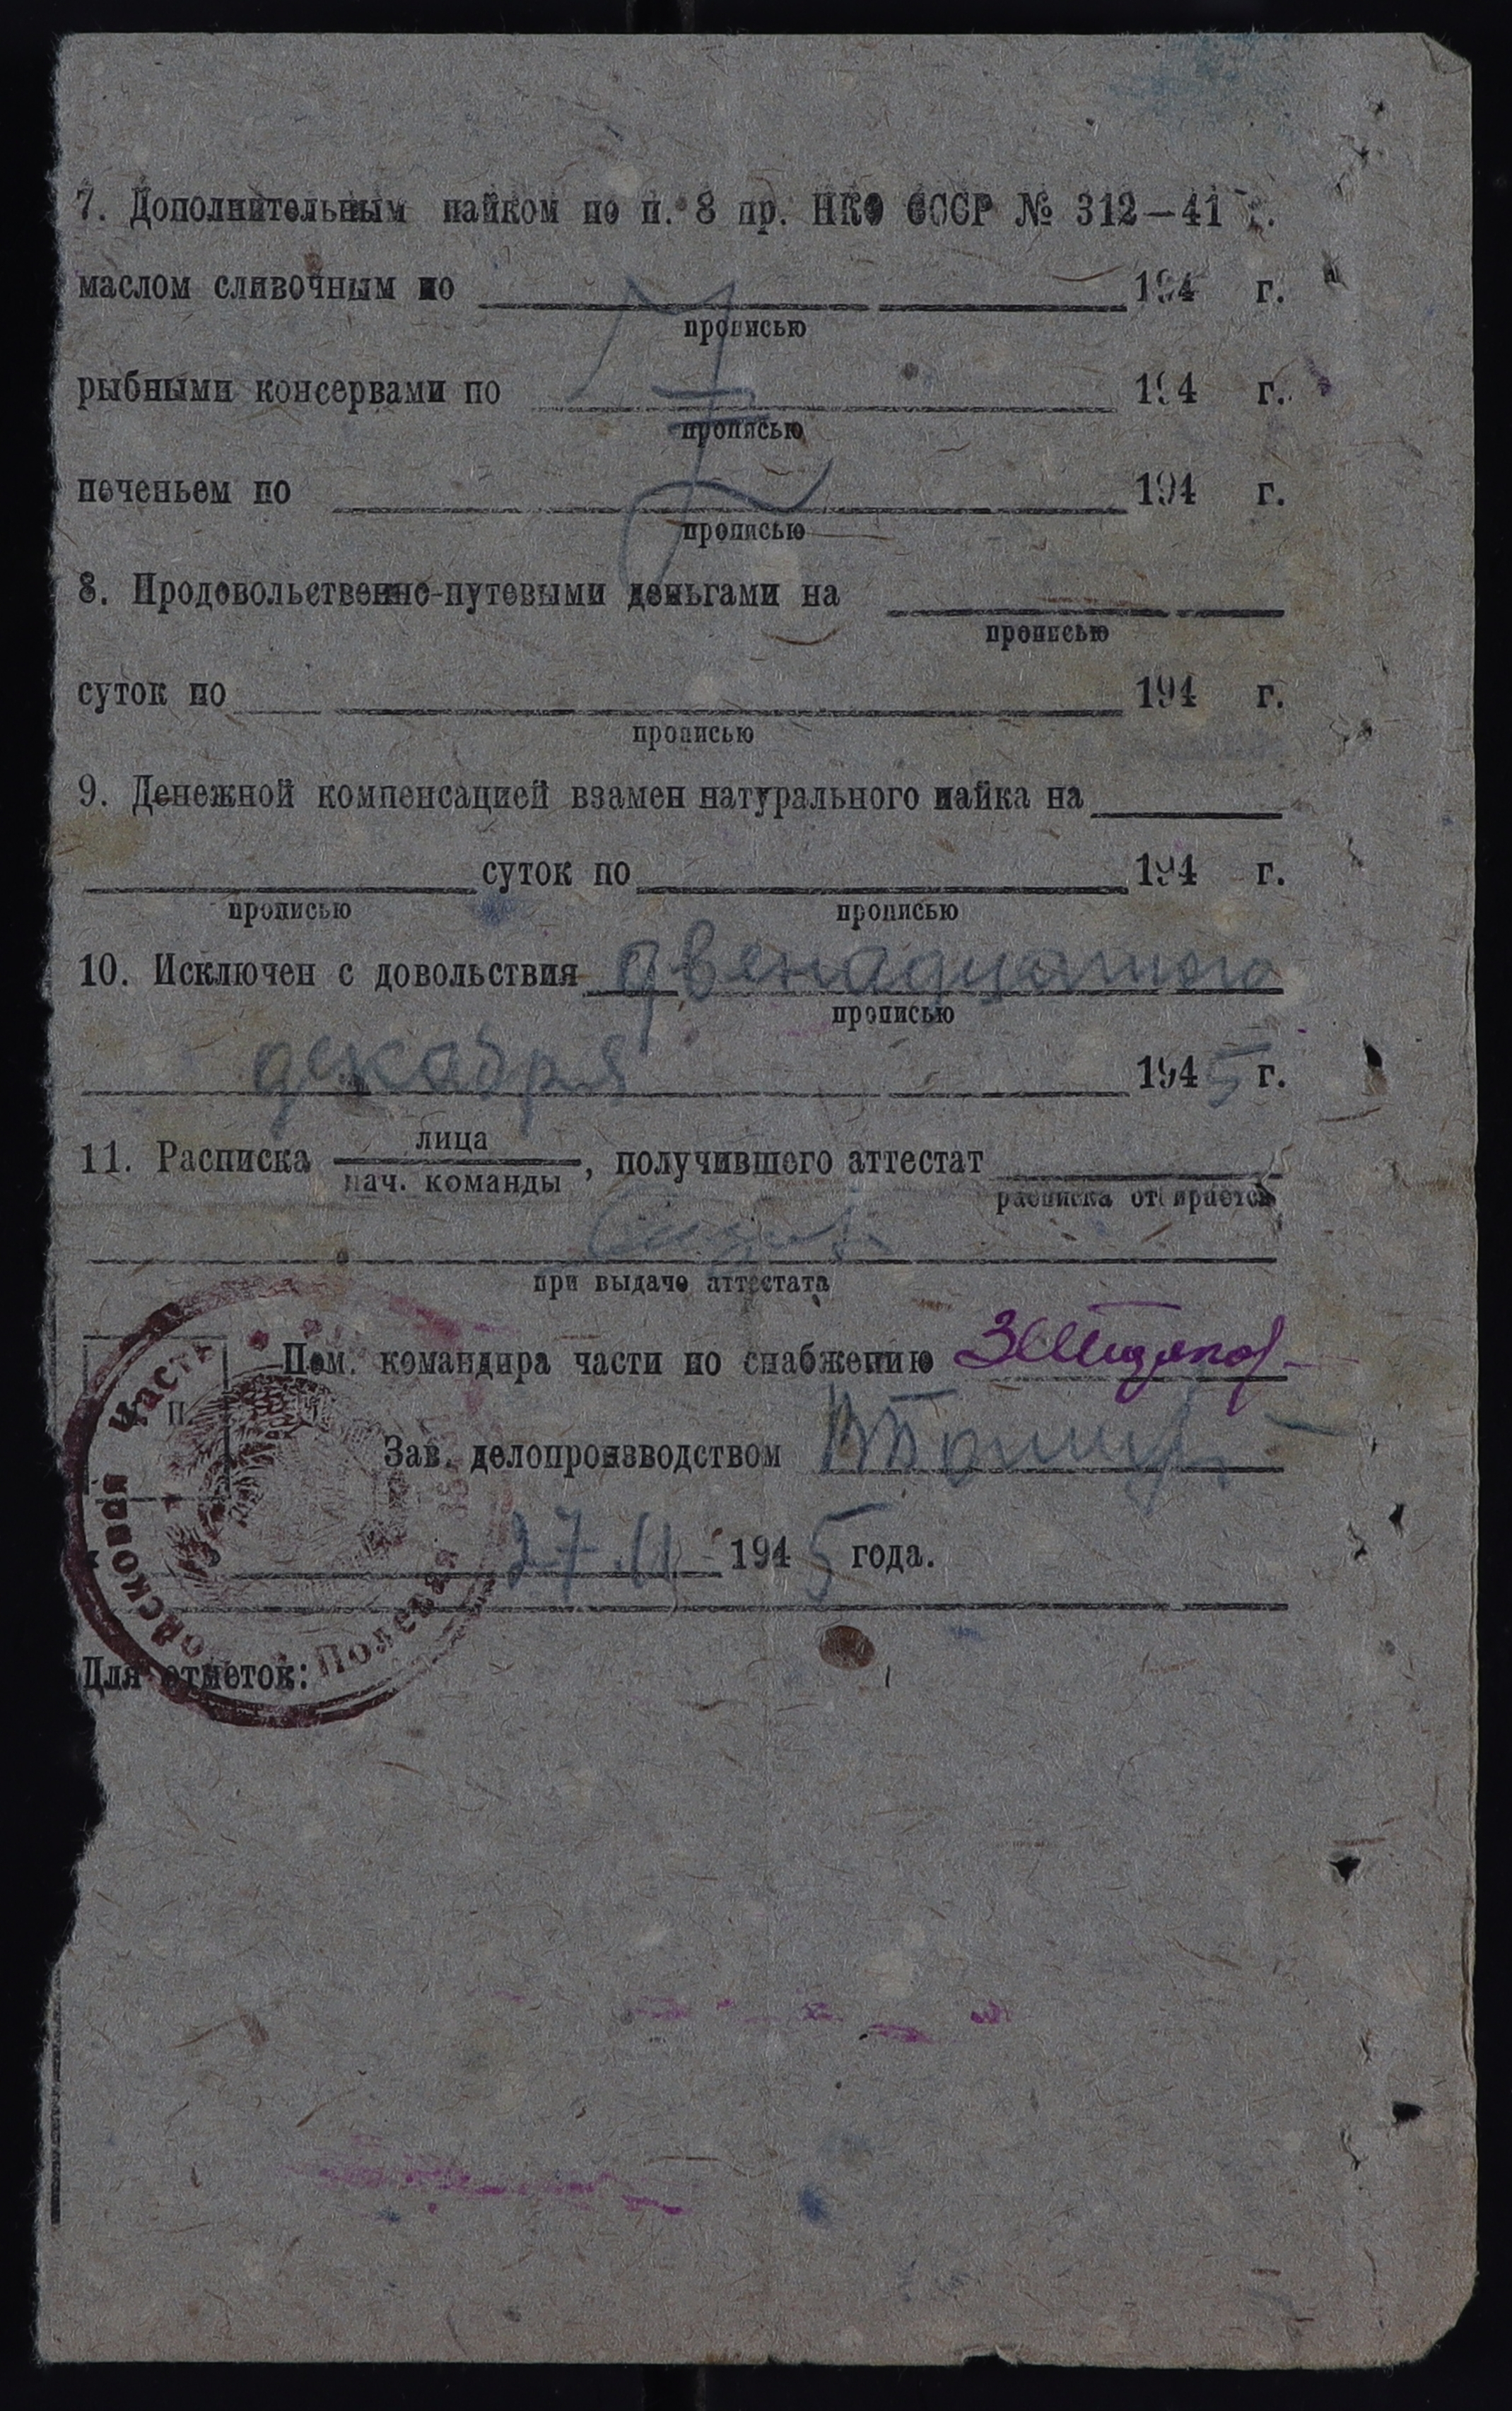 7. Дополнительным пайком по п. 8 пр. НКО СССР № 312—41 г.
маслом сливочным по 194 г.
прописью
рыбными консервами по 194 г.
прописью
печеньем по 194 г.
прописью
8. Продовольственно-путевыми деньгами на
прописью
суток по 194 г.
прописью
9. Денежной компенсацией взамен натурального пайка на
суток по 194 г.
прописью прописью
10. Исключен с довольствия двенадцатого
прописью
декабря 1945 г.
11. Расписка лица нач. команды, получившего аттестат
расписка отбирается
при выдаче аттестата
Пом. командира части по снабжению
Зав. делопроизводством
27.11 1945 года.
Для отметок:
часть Полевая